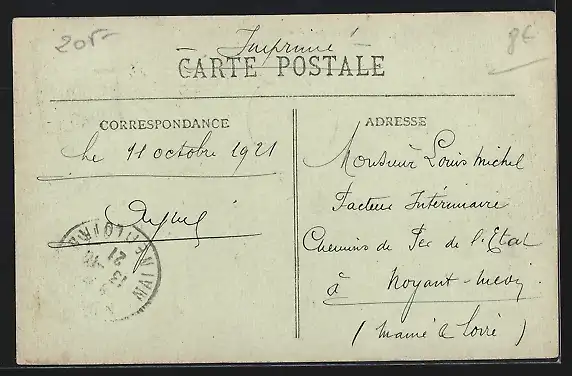 205-
Imprimé
8€
CARTE POSTALE
CORRESPONDANCE
ADRESSE
Le 11 octobre 1921
Monsieur Louis Michel
Facteur Intérimaire
Chemins de Fer de l'Etat
à Noyant-Mévi
(Maine & Loire)
21
13